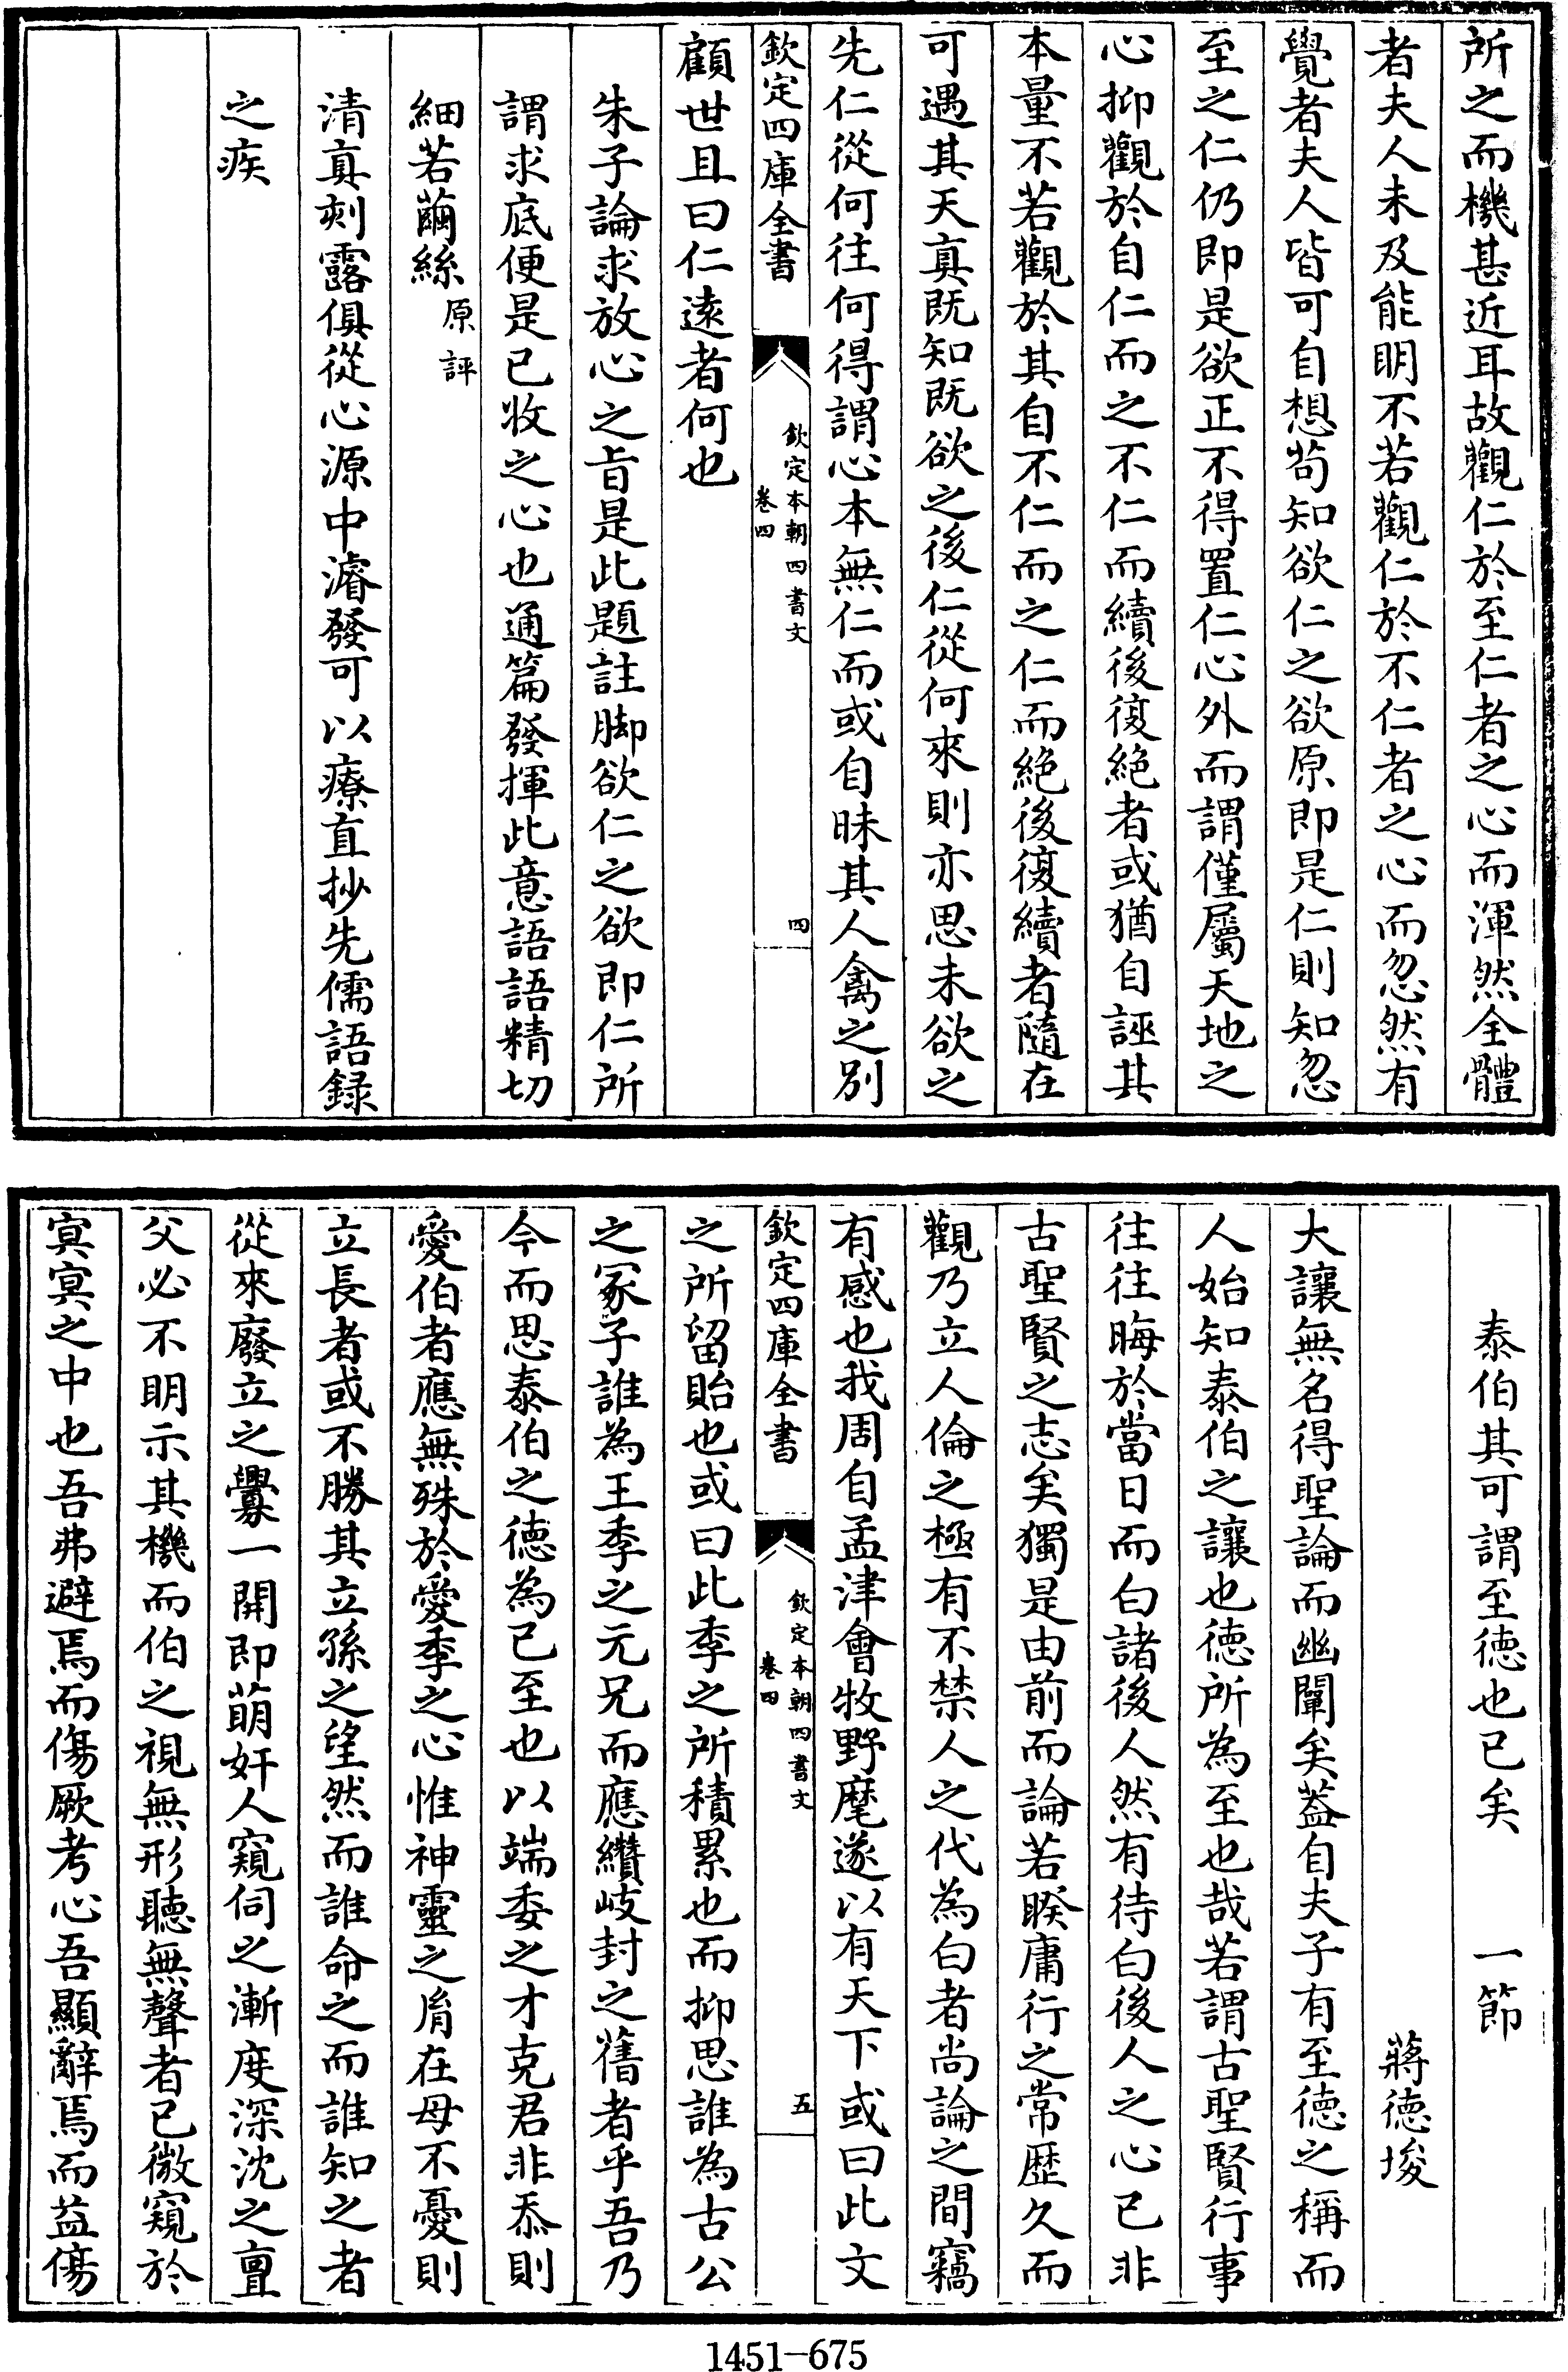 所之而機甚近耳故觀仁於至仁者之心而渾然全體
者夫人未及能明不若觀仁於不仁者之心而忽然有
覺者夫人皆可自想茍知欲仁之欲原即是仁則知忽
至之仁仍即是欲正不得置仁心外而謂僅屬天地之
心抑觀於自仁而之不仁而續後復絶者或猶自誣其
本量不若觀於其自不仁而之仁而絶後復續者隨在
可遇其天真既知既欲之後仁從何來則亦思未欲之
先仁從何往何得謂心本無仁而或自昧其人禽之別
欽定四庫全書
欽定本朝四書文
卷四
四
顧世且曰仁遠者何也
朱子論求放心之㫖是此題註脚欲仁之欲即仁所
謂求底便是已收之心也通篇發揮此意語語精切
細若繭絲原評
清真刻露俱從心源中濬發可以療直抄先儒語録
之疾
泰伯其可謂至德也已矣 一節
蔣德埈
大讓無名得聖論而幽闡矣葢自夫子有至德之稱而
人始知泰伯之讓也德所為至也哉若謂古聖賢行事
往往晦於當日而白諸後人然有待白後人之心已非
古聖賢之志矣獨是由前而論若暌庸行之常歴久而
觀乃立人倫之極有不禁人之代為白者尚論之間竊
有感也我周自孟津會牧野麾遂以有天下或曰此文
欽定四庫全書
欽定本朝四書文
卷四
五
之所留貽也或曰此季之所積累也而抑思誰為古公
之冢子誰為王季之元兄而應纘岐封之舊者乎吾乃
今而思泰伯之德為已至也以端委之才克君非忝則
愛伯者應無殊於愛季之心惟神靈之㣧在母不憂則
立長者或不勝其立孫之望然而誰命之而誰知之者
從來廢立之釁一開即萌奸人窺伺之漸度深沈之亶
父必不明示其機而伯之視無形聽無聲者已微窺於
冥冥之中也吾弗避焉而傷厥考心吾顯辭焉而益傷
1451-675